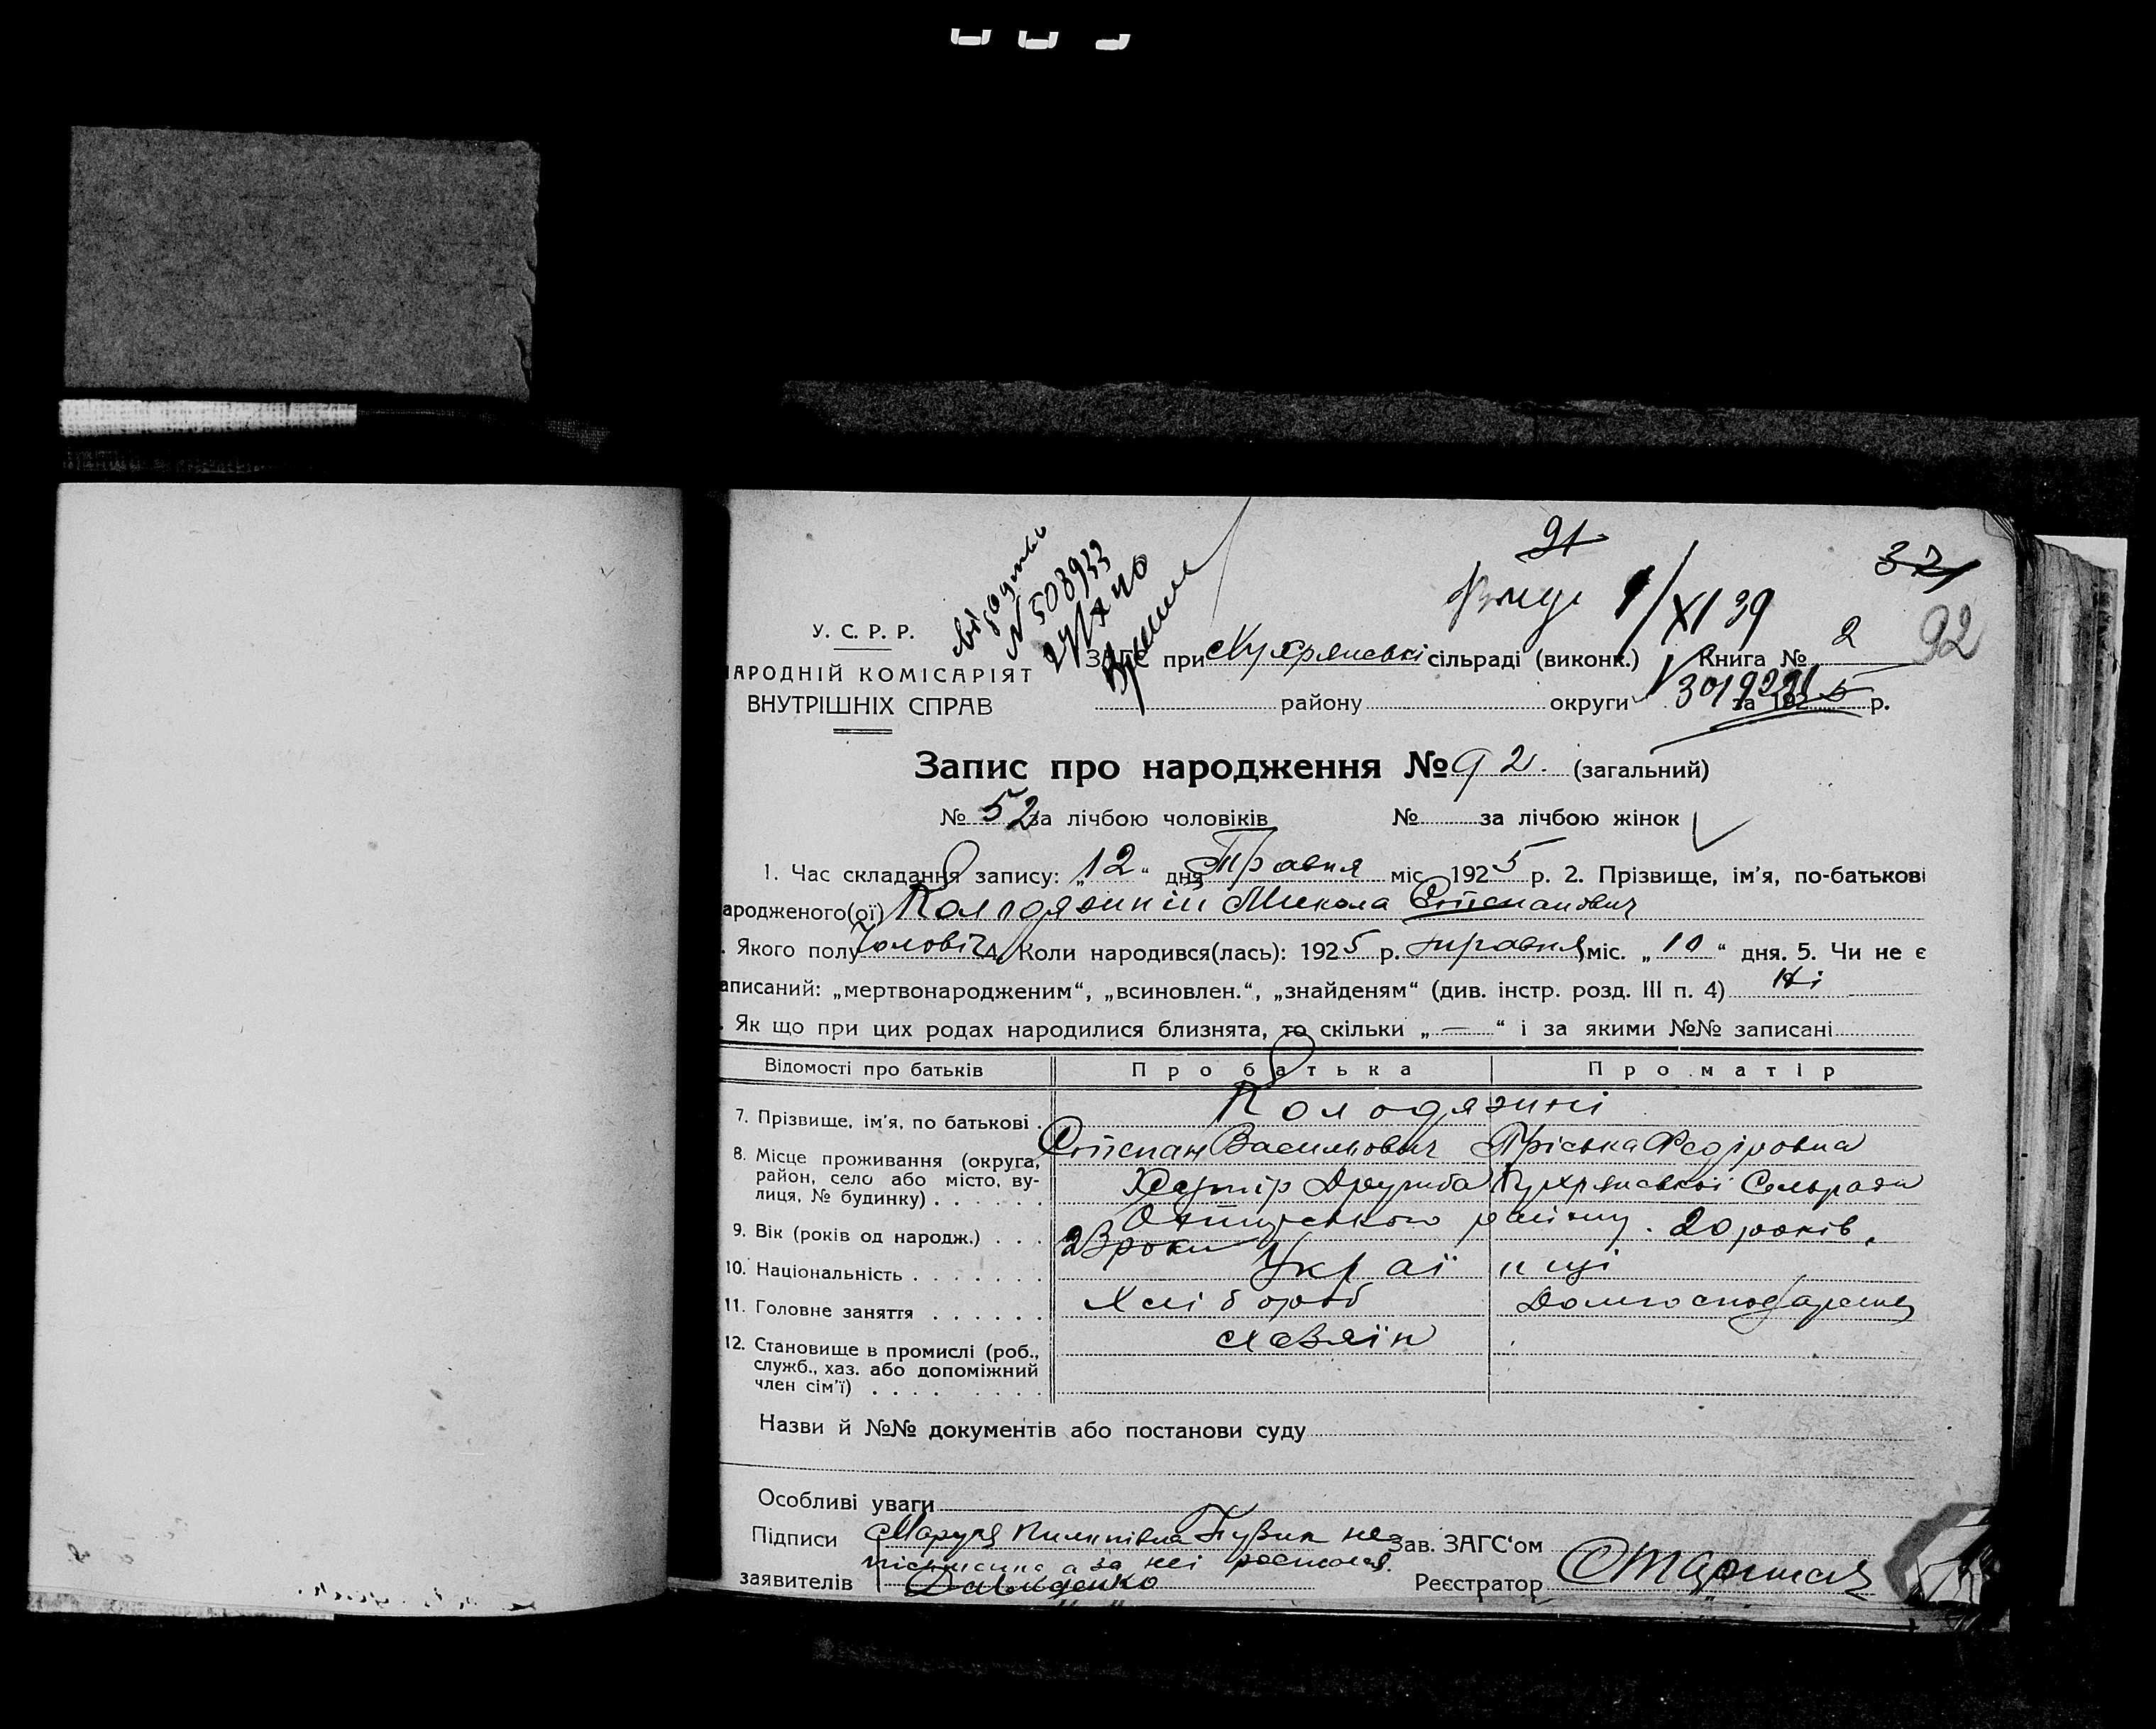 91
371
1/XI 39
92
№ 508933
У. С. Р. Р.
ЗАГС при сільраді (виконк.) Книга № 2
АРОДНІЙ КОМІСАРІЯТ
ВНУТРІШНІХ СПРАВ
району округи за 192 5 р.
Запис про народження № 92. (загальний)
№ 52 за лічбою чоловіків № за лічбою жінок
1. Час складання запису: „12“ дня Травня міс. 1925 р. 2. Прізвище, ім'я, по-батькові
ародженого(ої) Колодяжний Микола Степанович
. Якого полу чоловіч 4. Коли народився(лась): 1925 р. травня міс. „10“ дня. 5. Чи не є
аписаний: „мертвонародженим“, „всиновлен.“, „знайденям“ (див. інстр. розд. III п. 4) Ні
. Як що при цих родах народилися близнята, то скільки „—“ і за якими №№ записані
Відомості про батьків Про батька Про матір
7. Прізвище, ім'я, по батькові . Колодяжні
Степан Василович Пріська Федіровна
8. Місце проживання (округа,
район, село або місто, ву-
лиця, № будинку) . . . . . . Хутір Дружба Сельради
району. 20 років.
9. Вік (років од народж.) . . . 23 роки
10. Національність . . . . . . . Українці
11. Головне заняття . . . . . . Хлібороб Домгосподарка
12. Становище в промислі (роб.,
служб., хаз. або допоміжний
член сім'ї) . . . . . . . . хазяїн
Назви й №№ документів або постанови суду
Особливі уваги
Підписи Пилипівна не Зав. ЗАГС'ом
а за неї
заявителів Давиденко Реєстратор